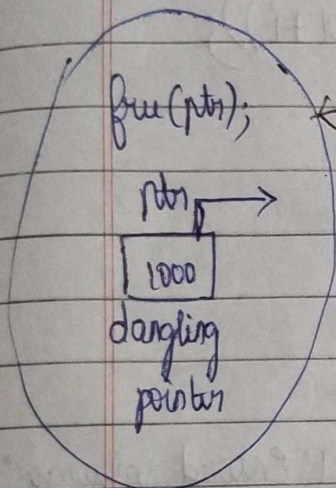 free(ptr);
ptr
1000
dangling
pointer